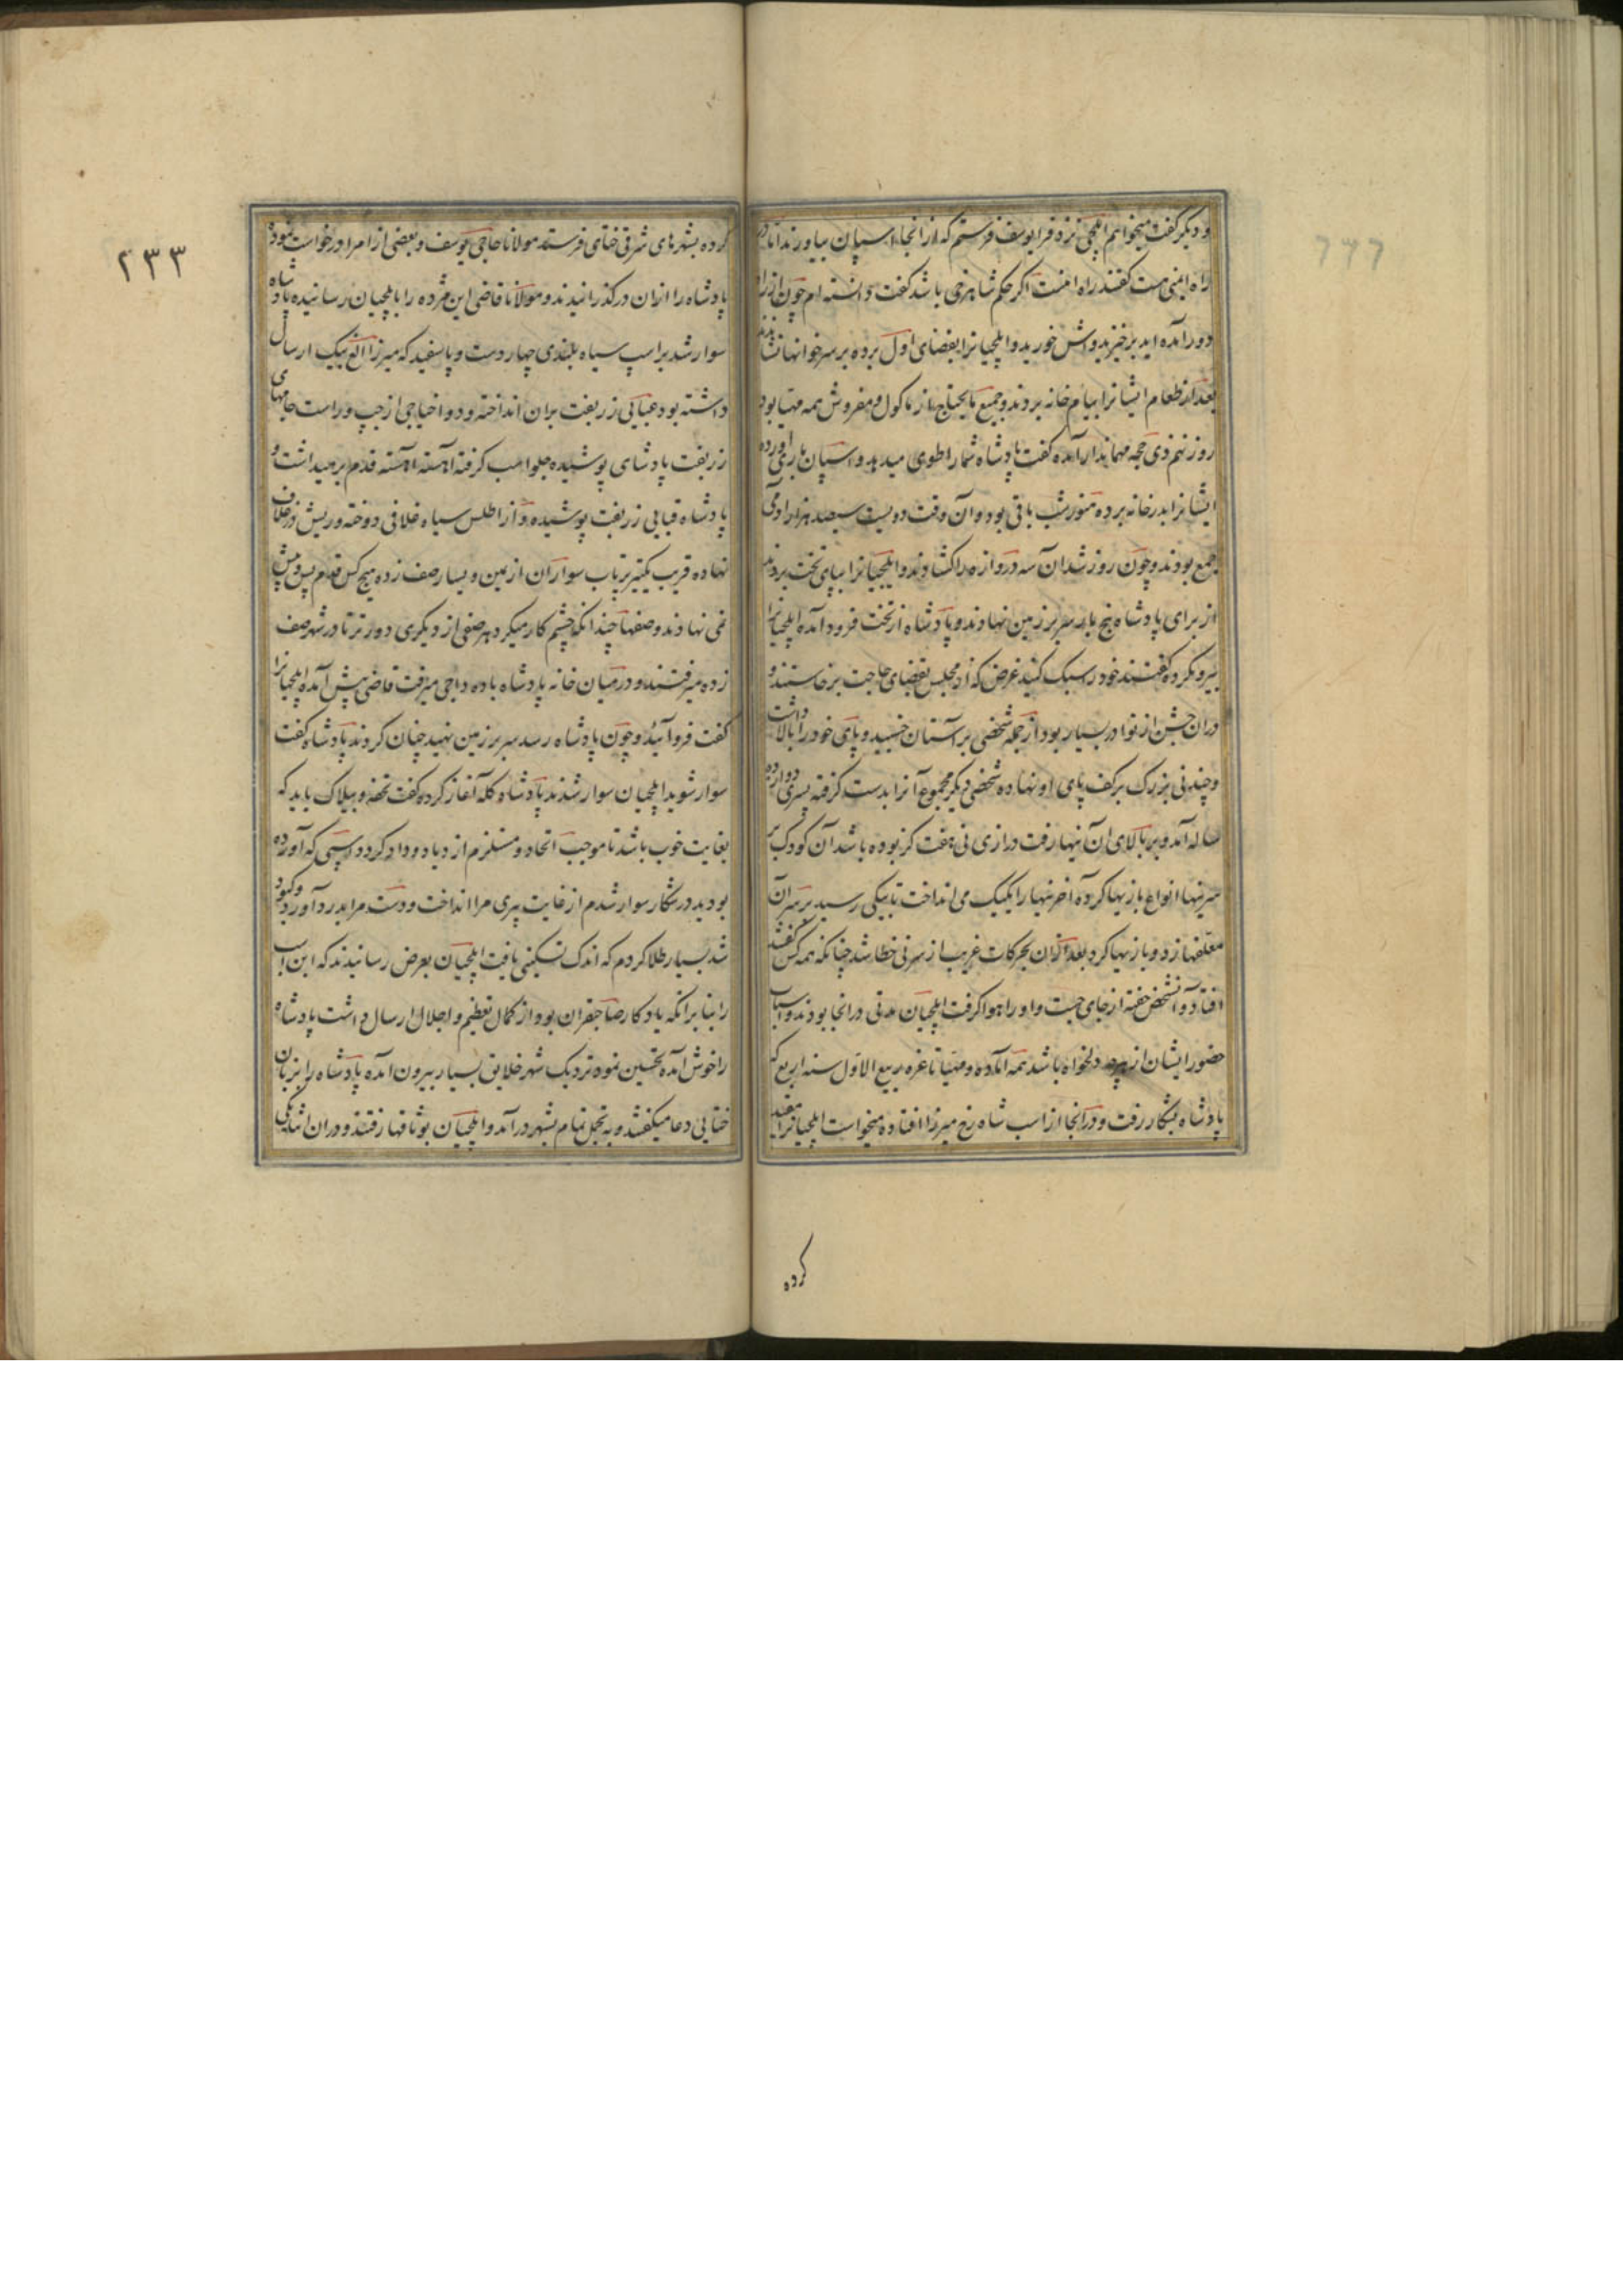 و دیگر گفت میخواهم ایلچی نزد قرا یوسف فرستم که از انجا اسپان بیاورند اما در
راه ایمنی هست گفتند راه امنست اگر حکم شاهرخی باشد گفت دانسته ام چون از راه
دور آمده اید برخیزید و آش خورید و ایلچیانرا بفضای اول برده بر سر خوانها نشاندند
بعد از طعام ایشانرا بیام خانه بردند و جمیع مایحتاج از ماکول و مفروش همه مهیا بود
روز نهم ذی حجه مهماندار آمده گفت پادشاه شما را طوی میدهد و اسپان باری آورده
ایشانرا بدرخانه برده هنوز شب باقی بود و آن وقت دویست سیصد هزار آدمی
جمع بودند و چون روز شد آن سه دروازه را کشادند و ایلچیانرا بپای تخت بردند
از برای پادشاه پنج بار سر بر زمین نهادند و پادشاه از تخت فرود آمده ایلچیانرا
بیرون کرده گفتند خود را سبک کنید غرض که از مجلس بقضای حاجت برخاستند و
دران جشن از نوادر بسیار بود از جمله شخصی بر آستان خسپید و پای خود را بالا داشت
و چند نی بزرگ بر کف پای او نهاده شخصی دیگر مجموع آنرا بدست گرفته پسری دوازده
ساله آمد و بر بالای آن نیها رفت درازی نی هفت گز بوده باشد آن کودک بر
سر نیها انواع بازیها کرده آخر نیها را یکیک می انداخت تا بیکی رسید بر سر آن
معلقها زد و بازیها کرد بعد از آن بحرکات غریب از سر نی خطا شد چنانکه همه کس گفتند
افتاد و آنشخص خفته از جای جست و او را در هوا گرفت ایلچیان مدتی در انجا بودند و اسباب
حضور ایشان از هرچه دلخواه باشد همه آماده و مهیا تا غره ربیع الاول سنه اربع که
پادشاه بشکار رفت و در انجا از اسب شاه رخ میرزا افتاده میخواست ایلچیانرا مقید
کرده
۲۳۳
کرده بشهرهای شرقی ختای فرستد مولانا حاجی یوسف و بعضی از امرا درخواست نموده
پادشاه را ازان درگذرانیدند و مولانا قاضی این مژده را بایلچیان رسانیده پادشاه
سوار شد بر اسپ سیاه بلندی چهار دست و پا سفید که میرزا الغ بیک ارسال
داشته بود عبایی زربفت بران انداخته و دو اختاجی از چپ و راست جامهای
زربفت پادشای پوشیده جلو اسب گرفته آهسته آهسته قدم بر میداشت و
پادشاه قبایی زربفت پوشیده و از اطلس سیاه غلافی دوخته و ریش در غلاف
نهاده قریب یکتیر پرتاب سواران از یمین و یسار صف زده هیچ کس قدم پس و پیش
نمی نهادند و صفها چندانکه چشم کار میکرد هر صفی از دیگری دورتر تا در شهر صف
زده میرفتند و در میان خانه پادشاه با ده داجی میرفت قاضی پیش آمده ایلچیانرا
گفت فرو آئید و چون پادشاه رسد سر بر زمین نهید چنان کردند پادشاه گفت
سوار شوید ایلچیان سوار شدند پادشاه گله آغاز کرده گفت تحفه و بیلاک باید که
بغایت خوب باشد تا موجب اتحاد و مستلزم ازدیاد وداد گردد اسپی که آورده
بودید در شکار سوار شدم از غایت پیری مرا انداخت و دست مرا بدرد آورد و کبود
شد بسیار طلا کردم که اندک تسکینی یافت ایلچیان بعرض رسانیدند که این اسب
را بنا برانکه یادگار صاحبقران بود از کمال تعظیم و اجلال ارسال داشت پادشاه
را خوش آمده تحسین نمود نزدیک شهر خلایق بسیار بیرون آمده پادشاه را بزبان
ختایی دعا میگفتند و به تجمل تمام بشهر درآمد و ایلچیان بوثاقها رفتند و دران اثنا یکی